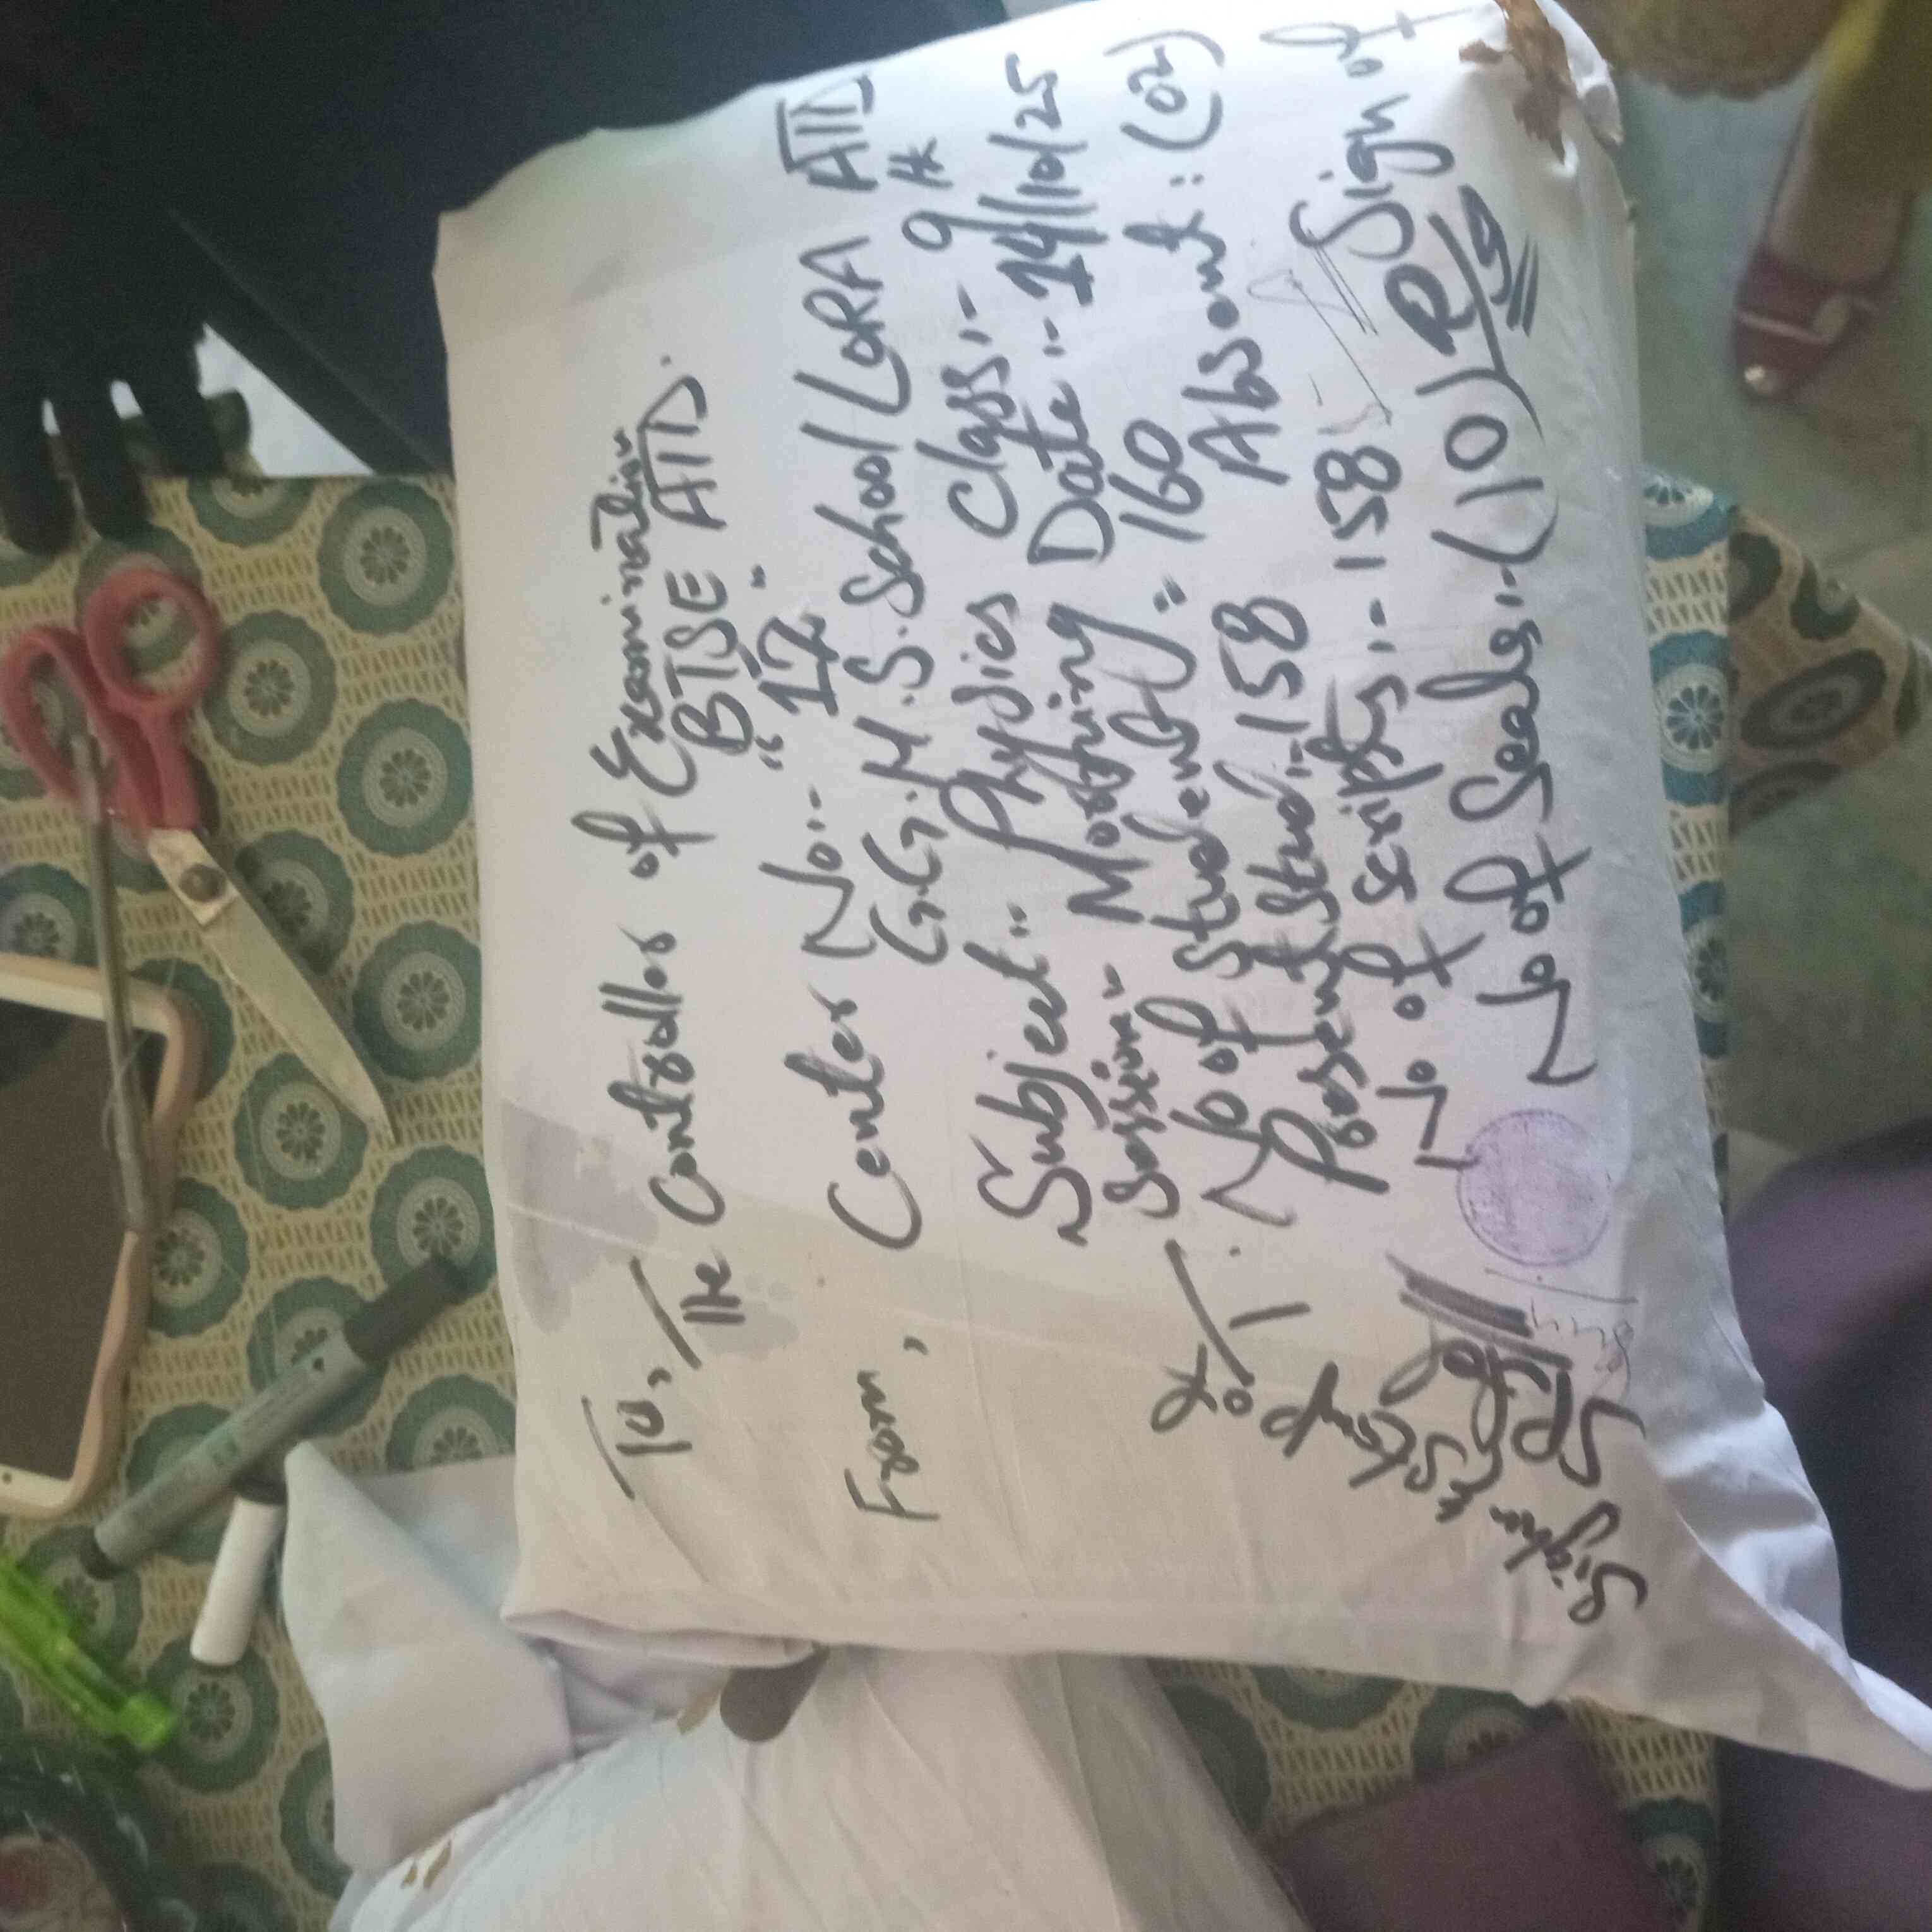 To,
The Controller of Examination
BTSE ATD.
From, Center No:- "17"
G.G.H.S. School LORA ATD
Subject:- Physics Class:- 9th
Session:- Morning Date:- 14/10/25
No of Students:- 160
Present Stud:- 158 Absent: (02)
No of scripts:- 158
No of Seals:- (10)
Sign of
Sign & Stamp
of